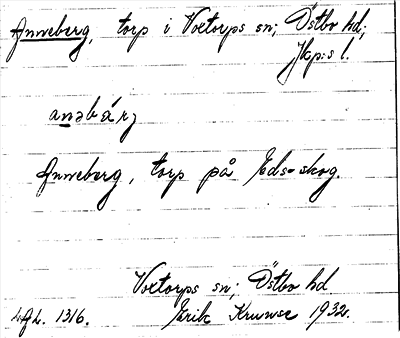 Anneberg, torp i Voxtorps sn; Östbo hd,
Jkp:s l.
anəbárj
Anneberg, torp på Eds-skog.
Voxtorps sn; Östbo hd
1316. Erik Kruuse 1932.